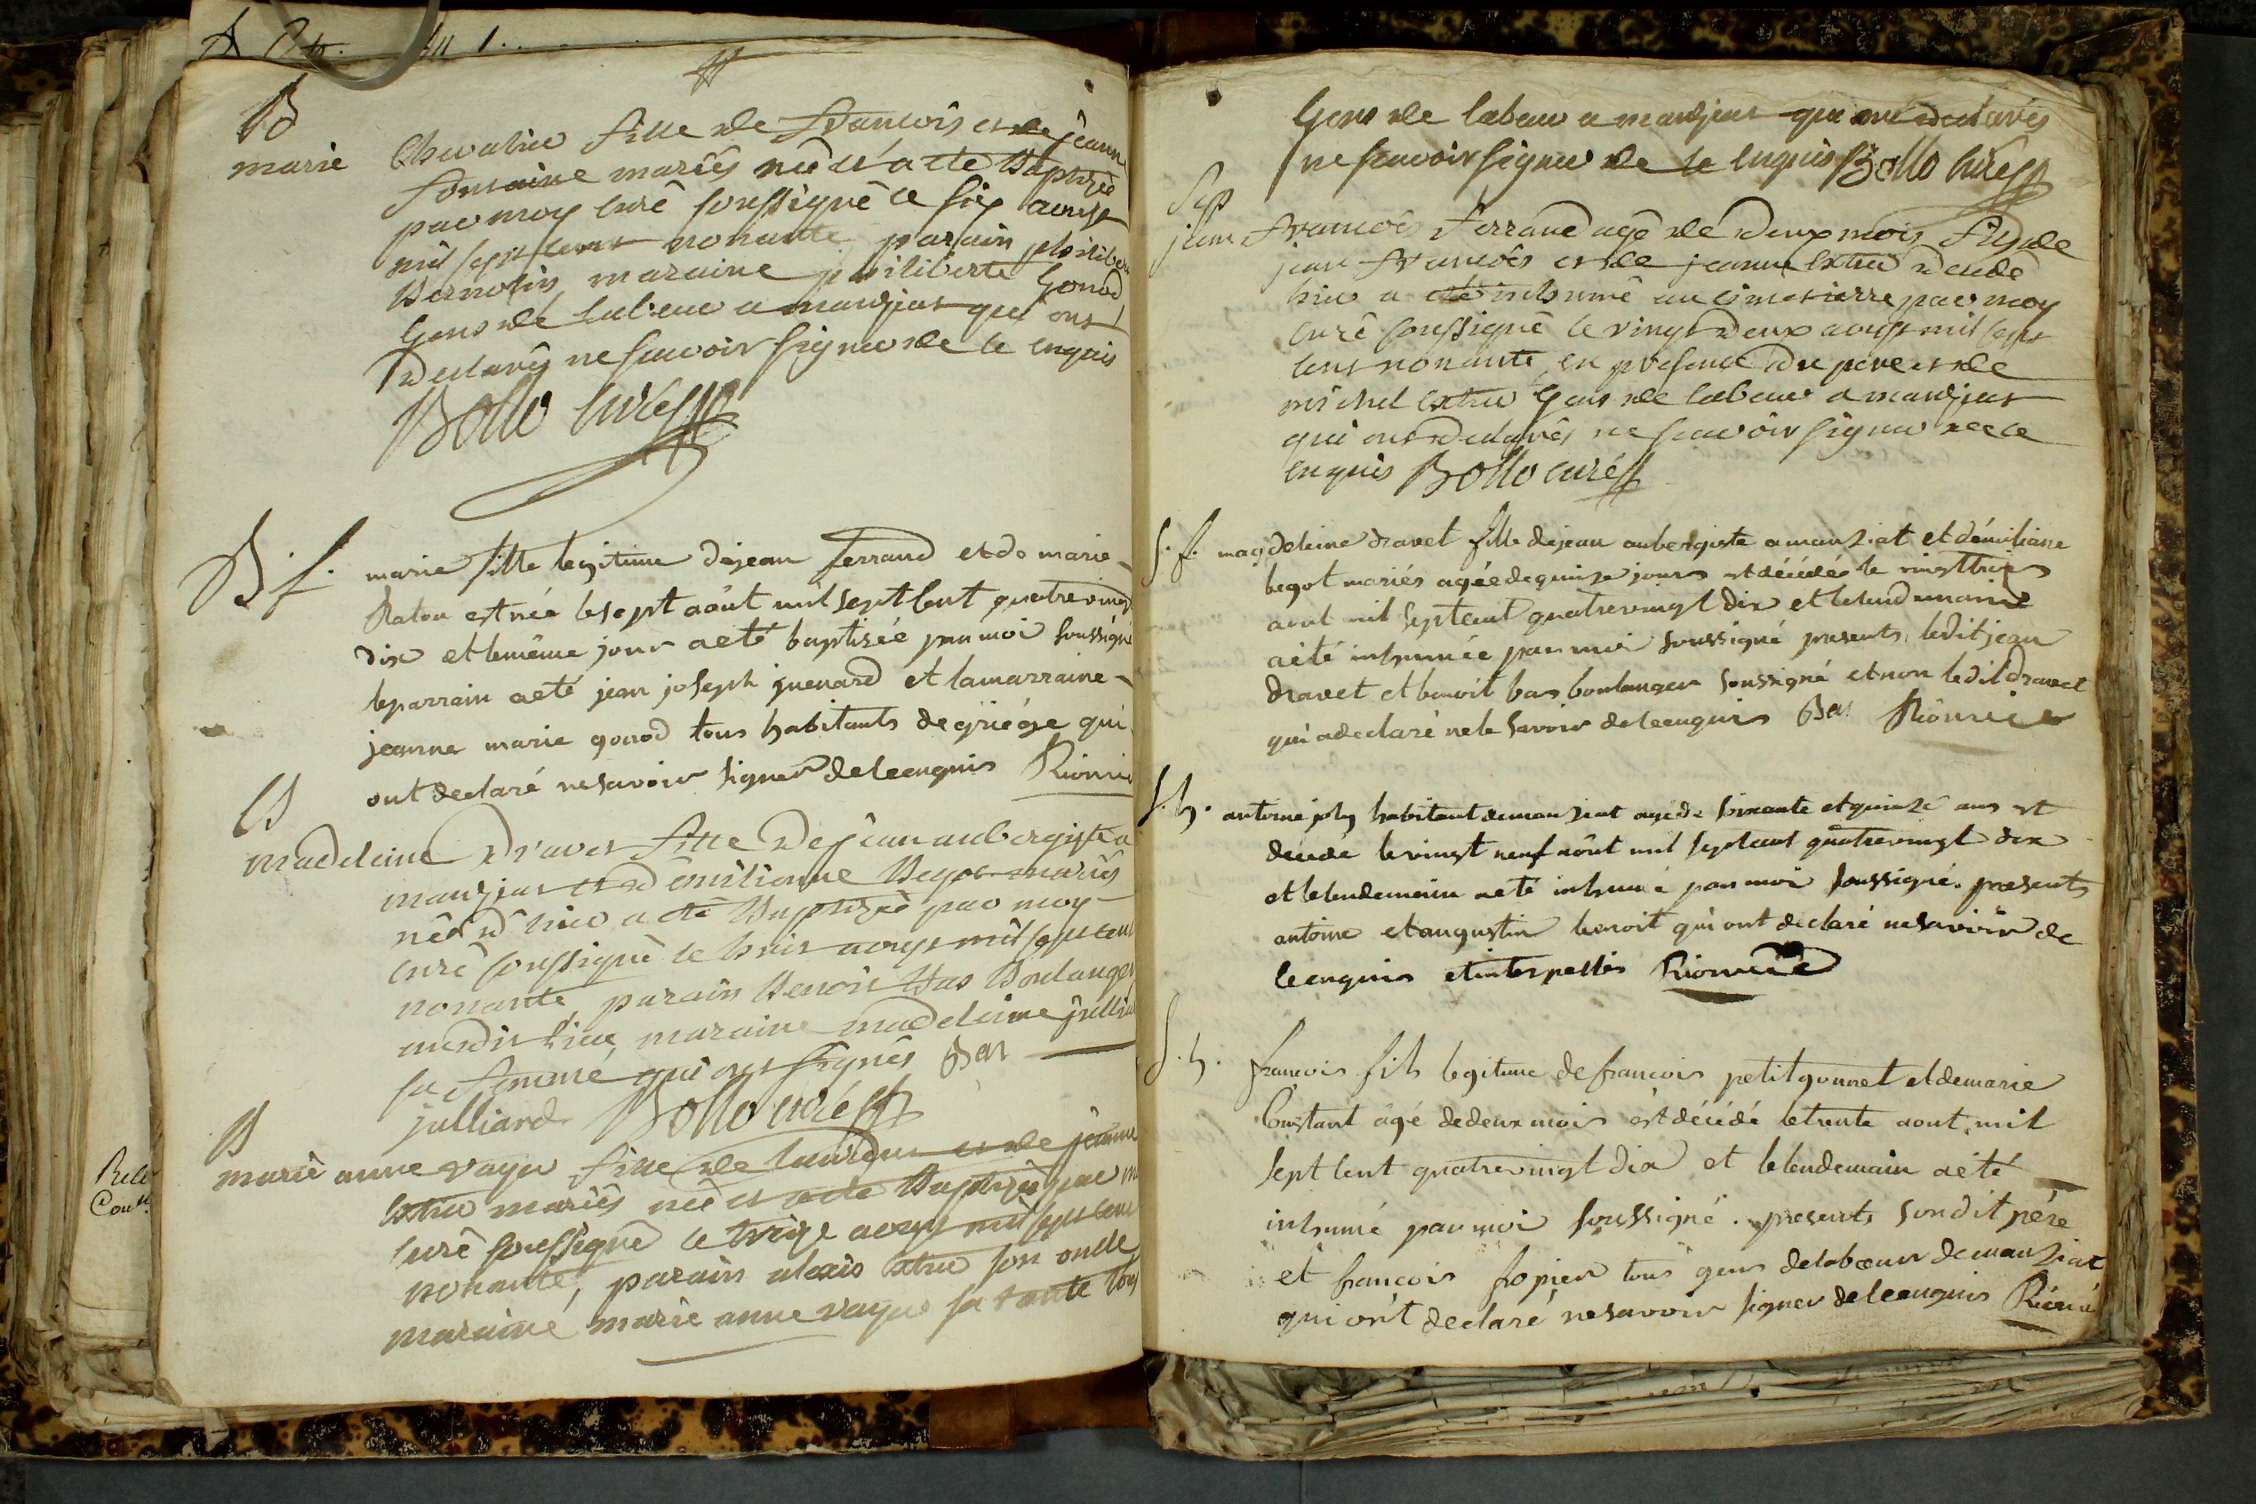 B
marie Chevalier fille de francois et de jeanne
fontaine mariés née et a eté Baptizée
par moy curé soussigné le six aoust
mil sept cent nonante, parain philibert
Bernolin maraine philiberte Gonod
Gens de labeur a manziat qui ont
declarés ne scavoir signer de le enquis
Bollo curé
B. f. marie fille legitime de jean ferrand et de marie
Ratou est née le sept aôut mil sept cent quatre vingt
dix et le même jour a eté baptisée par moi soussigné
le parrain a eté jean joseph guenard et la marraine
jeanne marie gonod tous habitants de griége qui
ont declaré ne savoir signer de le enquis Rionnie
B
madeleine Dravet fille de jean aubergiste a
manziat et d'emilianne Begot mariés
née d'hier a eté Baptizée par moy
curé soussigné le huit aoust mil sept cent
nonante, parain Benoit Bas Boulanger
au dit lieu maraine madeleine julliard
sa femme qui ont signés Bas
julliard Bollo curé
B
marie anne vayer fille de laurent et de jeanne
extrier mariés née et a eté Baptizée par
curé soussigné le treize aoust mil sept cent
nonante, parain alexis extrier son oncle
maraine marie anne vayer sa tante tous
Gens de labeur a manziat qui ont declarés
ne scavoir signer de le enquis Bollo curé
Sep
jean francois ferrand agé de deux mois fils de
jean francois et de jeanne extrier decedé
hier a eté inhumé au cimetierre par moy
curé soussigné le vingt deux aoust mil sept
cent nonante, en presence du pere et de
michel extrier Gens de labeur a manziat
qui ont declarés ne scavoir signer de le
enquis Bollo curé
S. f. magdeleine dravet fille de jean aubergiste a manziat et d'émiliane
begot mariés agée de quinze jours est décédée le vingt trois
aout mil sept cent quatre vingt dix et le lendemain
a été inhumée par moi soussigné presents ledit jean
dravet et benoit bas boulanger soussigné et non ledit dravet
qui a declaré ne le savoir de le enquis Bas Rionnie
S. h. antoine joly habitant de manziat agé de soixante et quinze ans est
decedé le vingt neuf aôut mil sept cent quatre vingt dix
et le lendemain a eté inhumé par moi soussigné. presents
antoine et augustin benoit qui ont declaré ne savoir de
le enquis et interpellés Rionnie
S. h. francois fils legitime de francois petit gonnet et de marie
Constant âgé de deux mois est décédé le trente aout mil
sept cent quatre vingt dix et le lendemain a été
inhumé par moi soussigné. presents son dit pére
et francois fropier tous gens de labeur de manziat
qui ont declaré ne savoir signer de le enquis